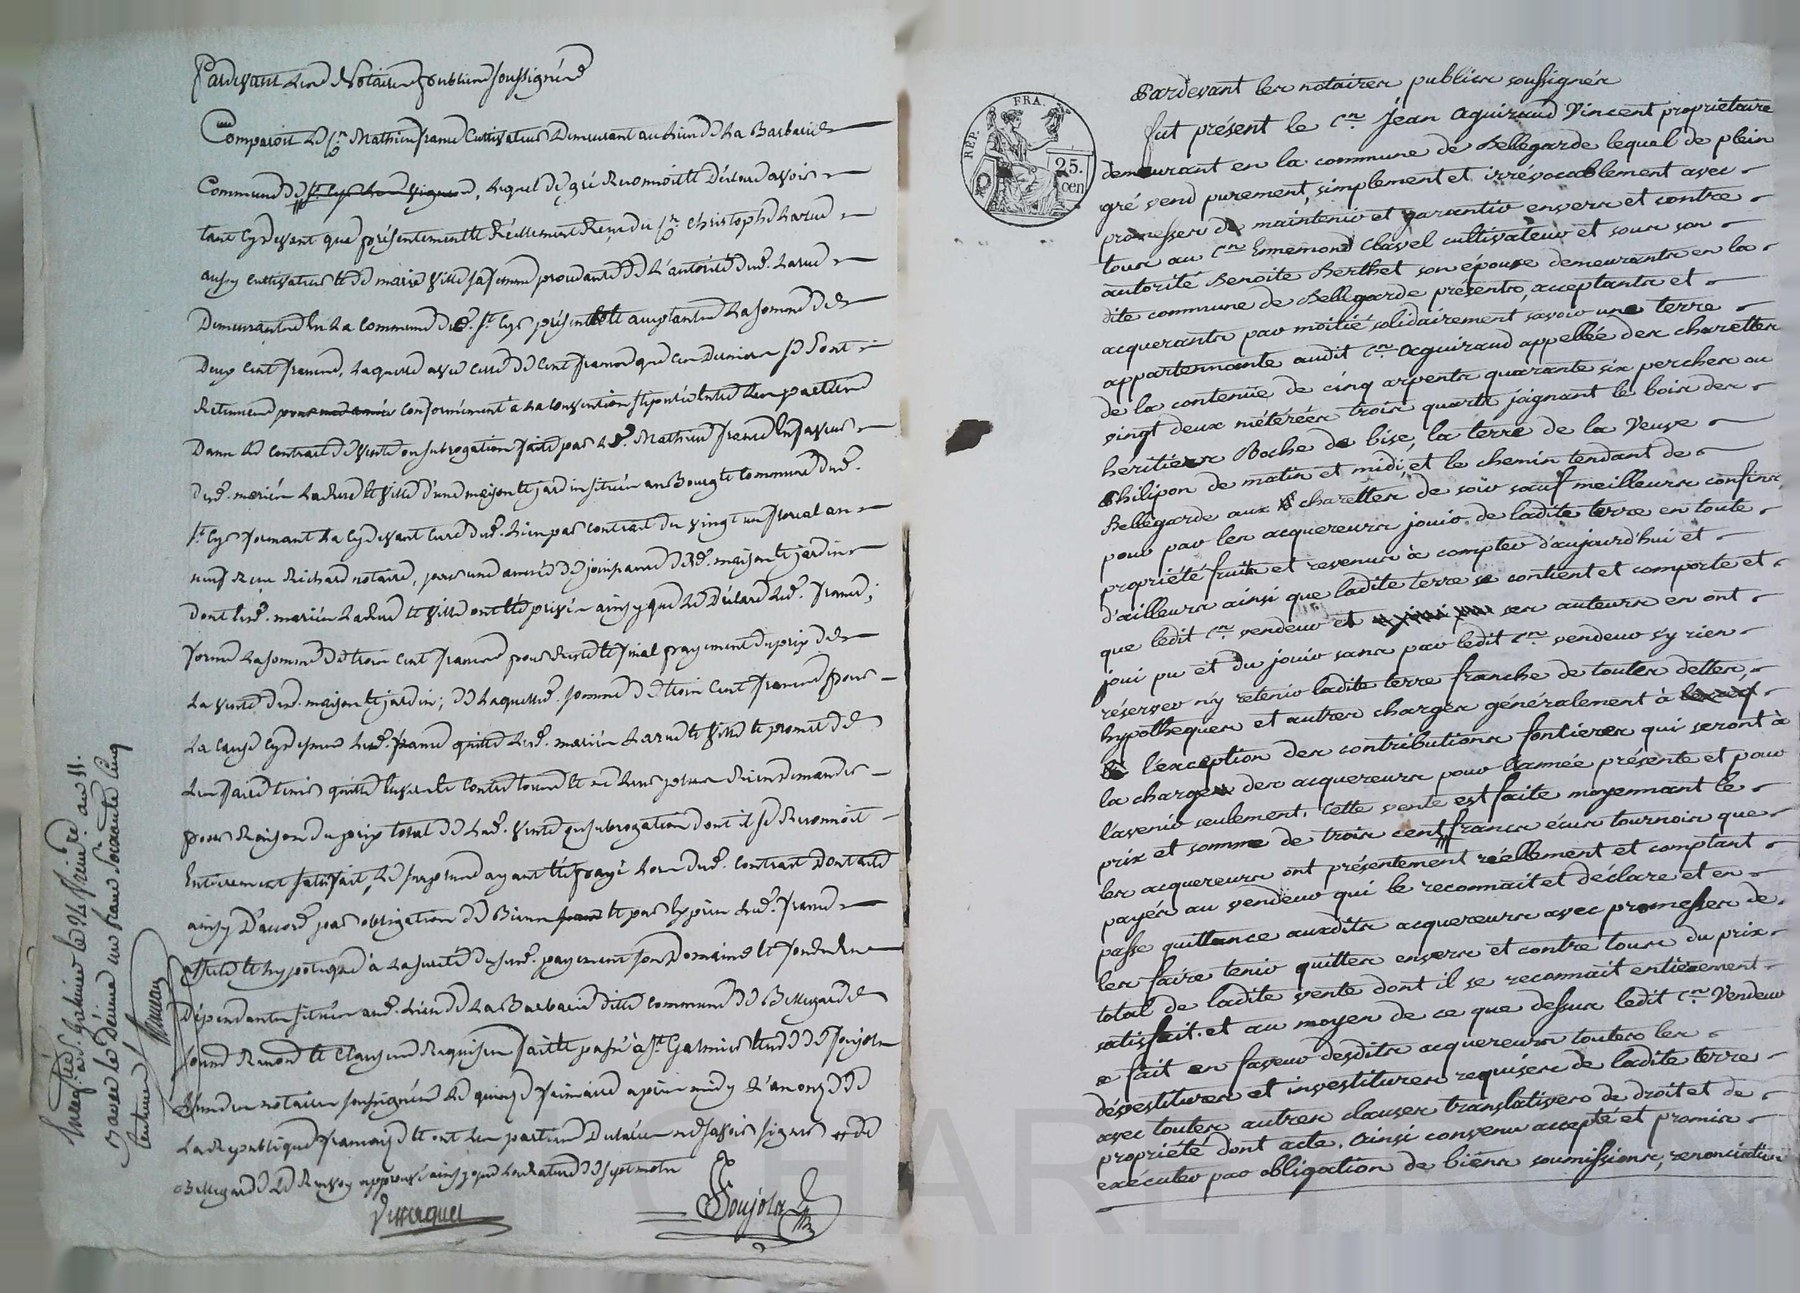 Pardevant Les Notaires publics soussignés
Comparoit Le Cn. Mathieu frane Cultivateur Demeurant au lieu de La Barbarie
Commune de St. Cyr les vignes, Lequel de gré Reconnoit et Déclare avoir
tant cy devant que présentement et Réellement Reçu du Cn. Christophe Larue
aussy cultivateur et de marie ville sa femme procedante de L'autorité dud. Larue
Demeurants en La Commune dud. St. Cyr présents et acceptants La somme de
Deux Cent francs, Laquelle avec celle de Cent francs que ces Derniers se sont
Retenus conformément a La convention stipulée entre Les parties
Dans Le contrat de vente ou subrogation faite par Led. Mathieu frane en faveur
dud. mariés Larue et ville d'une maison et jardin situés au Bourg et Commune dud.
St. Cyr formant La cy devant cure dud. Lieu par contrat du vingt un floreal an
neuf Reçu Richard notaire, pour une année de jouissance de lad. maison et jardin
dont lesd. mariés Larue et ville ont été privés ainsy que Le Déclare Led. frane;
forme La somme de trois cent francs pour Reste et final payement du prix de
La vente desd. maison et jardin; de Laquelle somme de trois cent francs pour
La cause cy dessus Led. frane quitte Lesd. mariés Larue et ville et promet de
Les faire tenir quittes envers et contre tous et ne Leur jamais Rien Demander
pour Raison du prix total de Lad. vente ou subrogation dont il se Reconnoit
Entierement satisfait, Le surplus ayant été payé Lors dud. contrat Dont acte
ainsy D'accord par obligation de Biens et par exprès Led. frane
affecte et hypoteque à La sureté du payement son Domaine et fonds en
Dépendants situés aud. Lieu de La Barbarie dite Commune de Bellegarde
sous Renon. et Clauses Requises fait et passé à St. Galmier Etude de Poujols
L'un des notaires soussignés Le quinze frimaire après midy L'an onze de
La Republique française et ont Les parties Déclaré ne savoir signer et de
Bellegarde Le Renvoy approuvé ainsy que La Rature de sept mots
Poujols
Enregistré à St. Galmier le 24 frimaire an 11.
Reçu avec le Décime un franc soixante Cinq
centimes
REP. FRA.
25
cen
Pardevant les notaires publics soussignés
fut présent le Cn. Jean Aguiraud Vincent propriétaire
demeurant en la commune de Bellegarde lequel de plein
gré vend purement, simplement et irrévocablement avec
promesses de maintenir et garantir envers et contre
tous au Cn. Ennemond Clavel cultivateur et sous son
autorité Benoite Berthet son épouse demeurants en la
dite commune de Bellegarde présents, acceptants et
acquerants par moitié solidairement savoir une terre
appartennante audit Cn. Aguiraud appellée des charettes
de la contenüe de cinq arpents quarante six perches ou
vingt deux métérées trois quarts joignant le bois des
héritiers Boche de bise, la terre de la Veuve
Philipon de matin et midi, et le chemin tendant de
Bellegarde aux charettes de soir sauf meilleurs confins,
pour par les acquereurs jouir de ladite terre en toute
propriété fruits et revenus à compter d'aujourd'hui et
d'ailleurs ainsi que ladite terre se contient et comporte et
que ledit Cn. vendeur et ses auteurs en ont
joui pu et du jouir sans par ledit Cn. vendeur s'y rien
réserver n'y retenir ladite terre franche de toutes dettes,
hypotheques et autres charges généralement à
l'exception des contributions fontieres qui seront à
la charge des acquereurs pour l'année présente et pour
l'avenir seulement. Cette vente est faite moyennant le
prix et somme de trois cent francs écus tournois que
les acquereurs ont présentement réellement et comptant
payés au vendeur qui le reconnait et declare et en
passe quittance auxdits acquereurs avec promesses de
les faire tenir quittes envers et contre tous du prix
total de ladite vente dont il se reconnait entièrement
satisfait. et au moyen de ce que dessus ledit Cn. Vendeur
a fait en faveur desdits acquereurs toutes les
dévestitures et investitures requises de ladite terre
avec toutes autres clauses translatives de droit et de
propriété dont acte. Ainsi convenu accepté et promis
exécuter par obligation de biens soumissions, renonciation